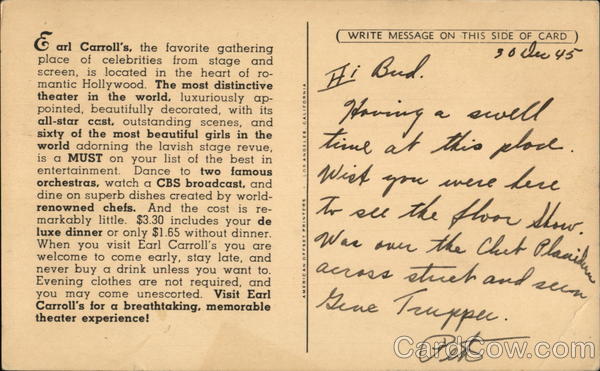 Earl Carroll's, the favorite gathering
place of celebrities from stage and
screen, is located in the heart of ro-
mantic Hollywood. The most distinctive
theater in the world, luxuriously ap-
pointed, beautifully decorated, with its
all-star cast, outstanding scenes, and
sixty of the most beautiful girls in the
world adorning the lavish stage revue,
is a MUST on your list of the best in
entertainment. Dance to two famous
orchestras, watch a CBS broadcast, and
dine on superb dishes created by world-
renowned chefs. And the cost is re-
markably little. $3.30 includes your de
luxe dinner or only $1.65 without dinner.
When you visit Earl Carroll's you are
welcome to come early, stay late, and
never buy a drink unless you want to.
Evening clothes are not required, and
you may come unescorted. Visit Earl
Carroll's for a breathtaking, memorable
theater experience!
AMERICAN OFFSET PRINTERS LOS ANGELES, CALIFORNIA
( WRITE MESSAGE ON THIS SIDE OF CARD )
30 Dec 45
Hi Bud.
Having a swell
time at this place.
Wist you were here
to see the floor show.
Was over the
across street and seen
Gene Trupper.
Pete
CardCow.com